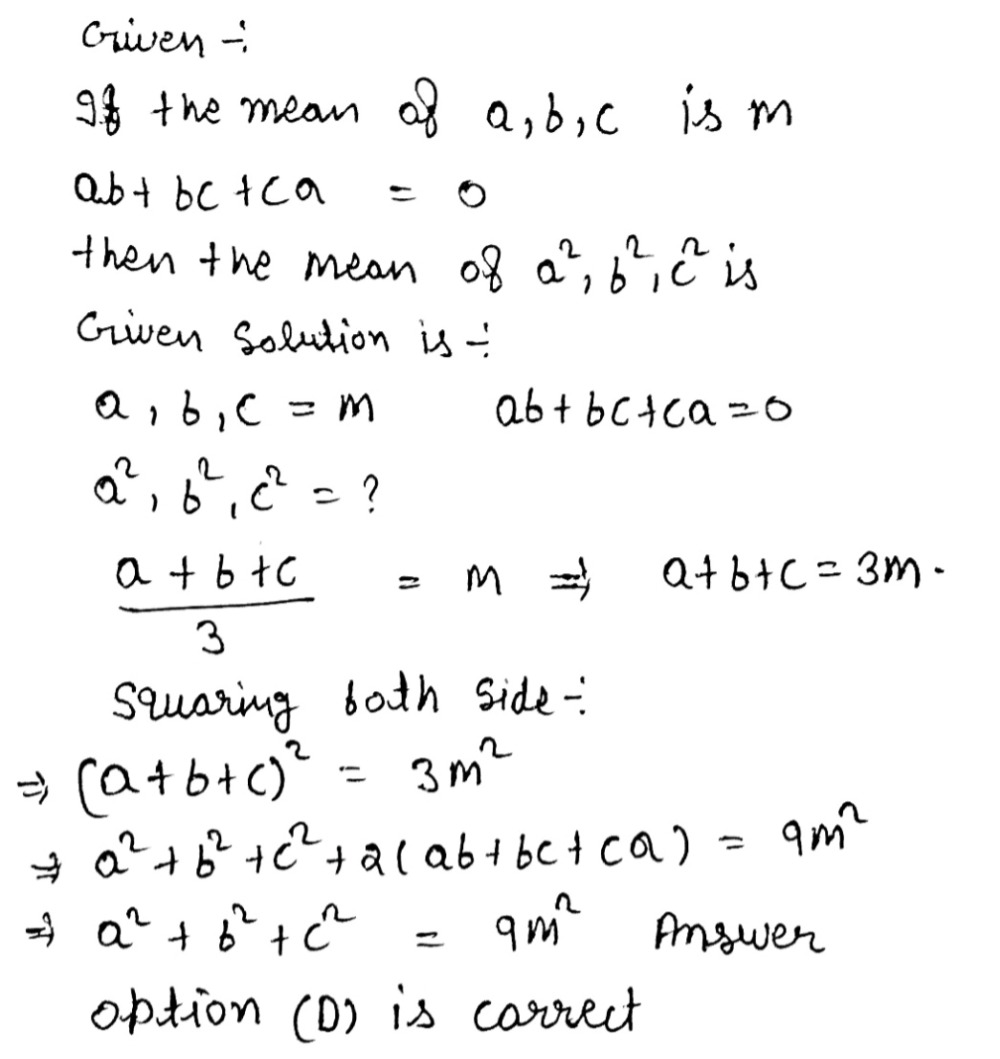 Given ÷
If the mean of a, b, c is m
ab + bc + ca = 0
then the mean of a², b², c² is
Given Solution is ÷
a, b, c = m ab + bc + ca = 0
a², b², c² = ?
a + b + c / 3 = m ⇒ a + b + c = 3m.
Squaring both side ÷
⇒ (a + b + c)² = 3m²
⇒ a² + b² + c² + 2(ab + bc + ca) = 9m²
⇒ a² + b² + c² = 9m² Answer
option (D) is correct